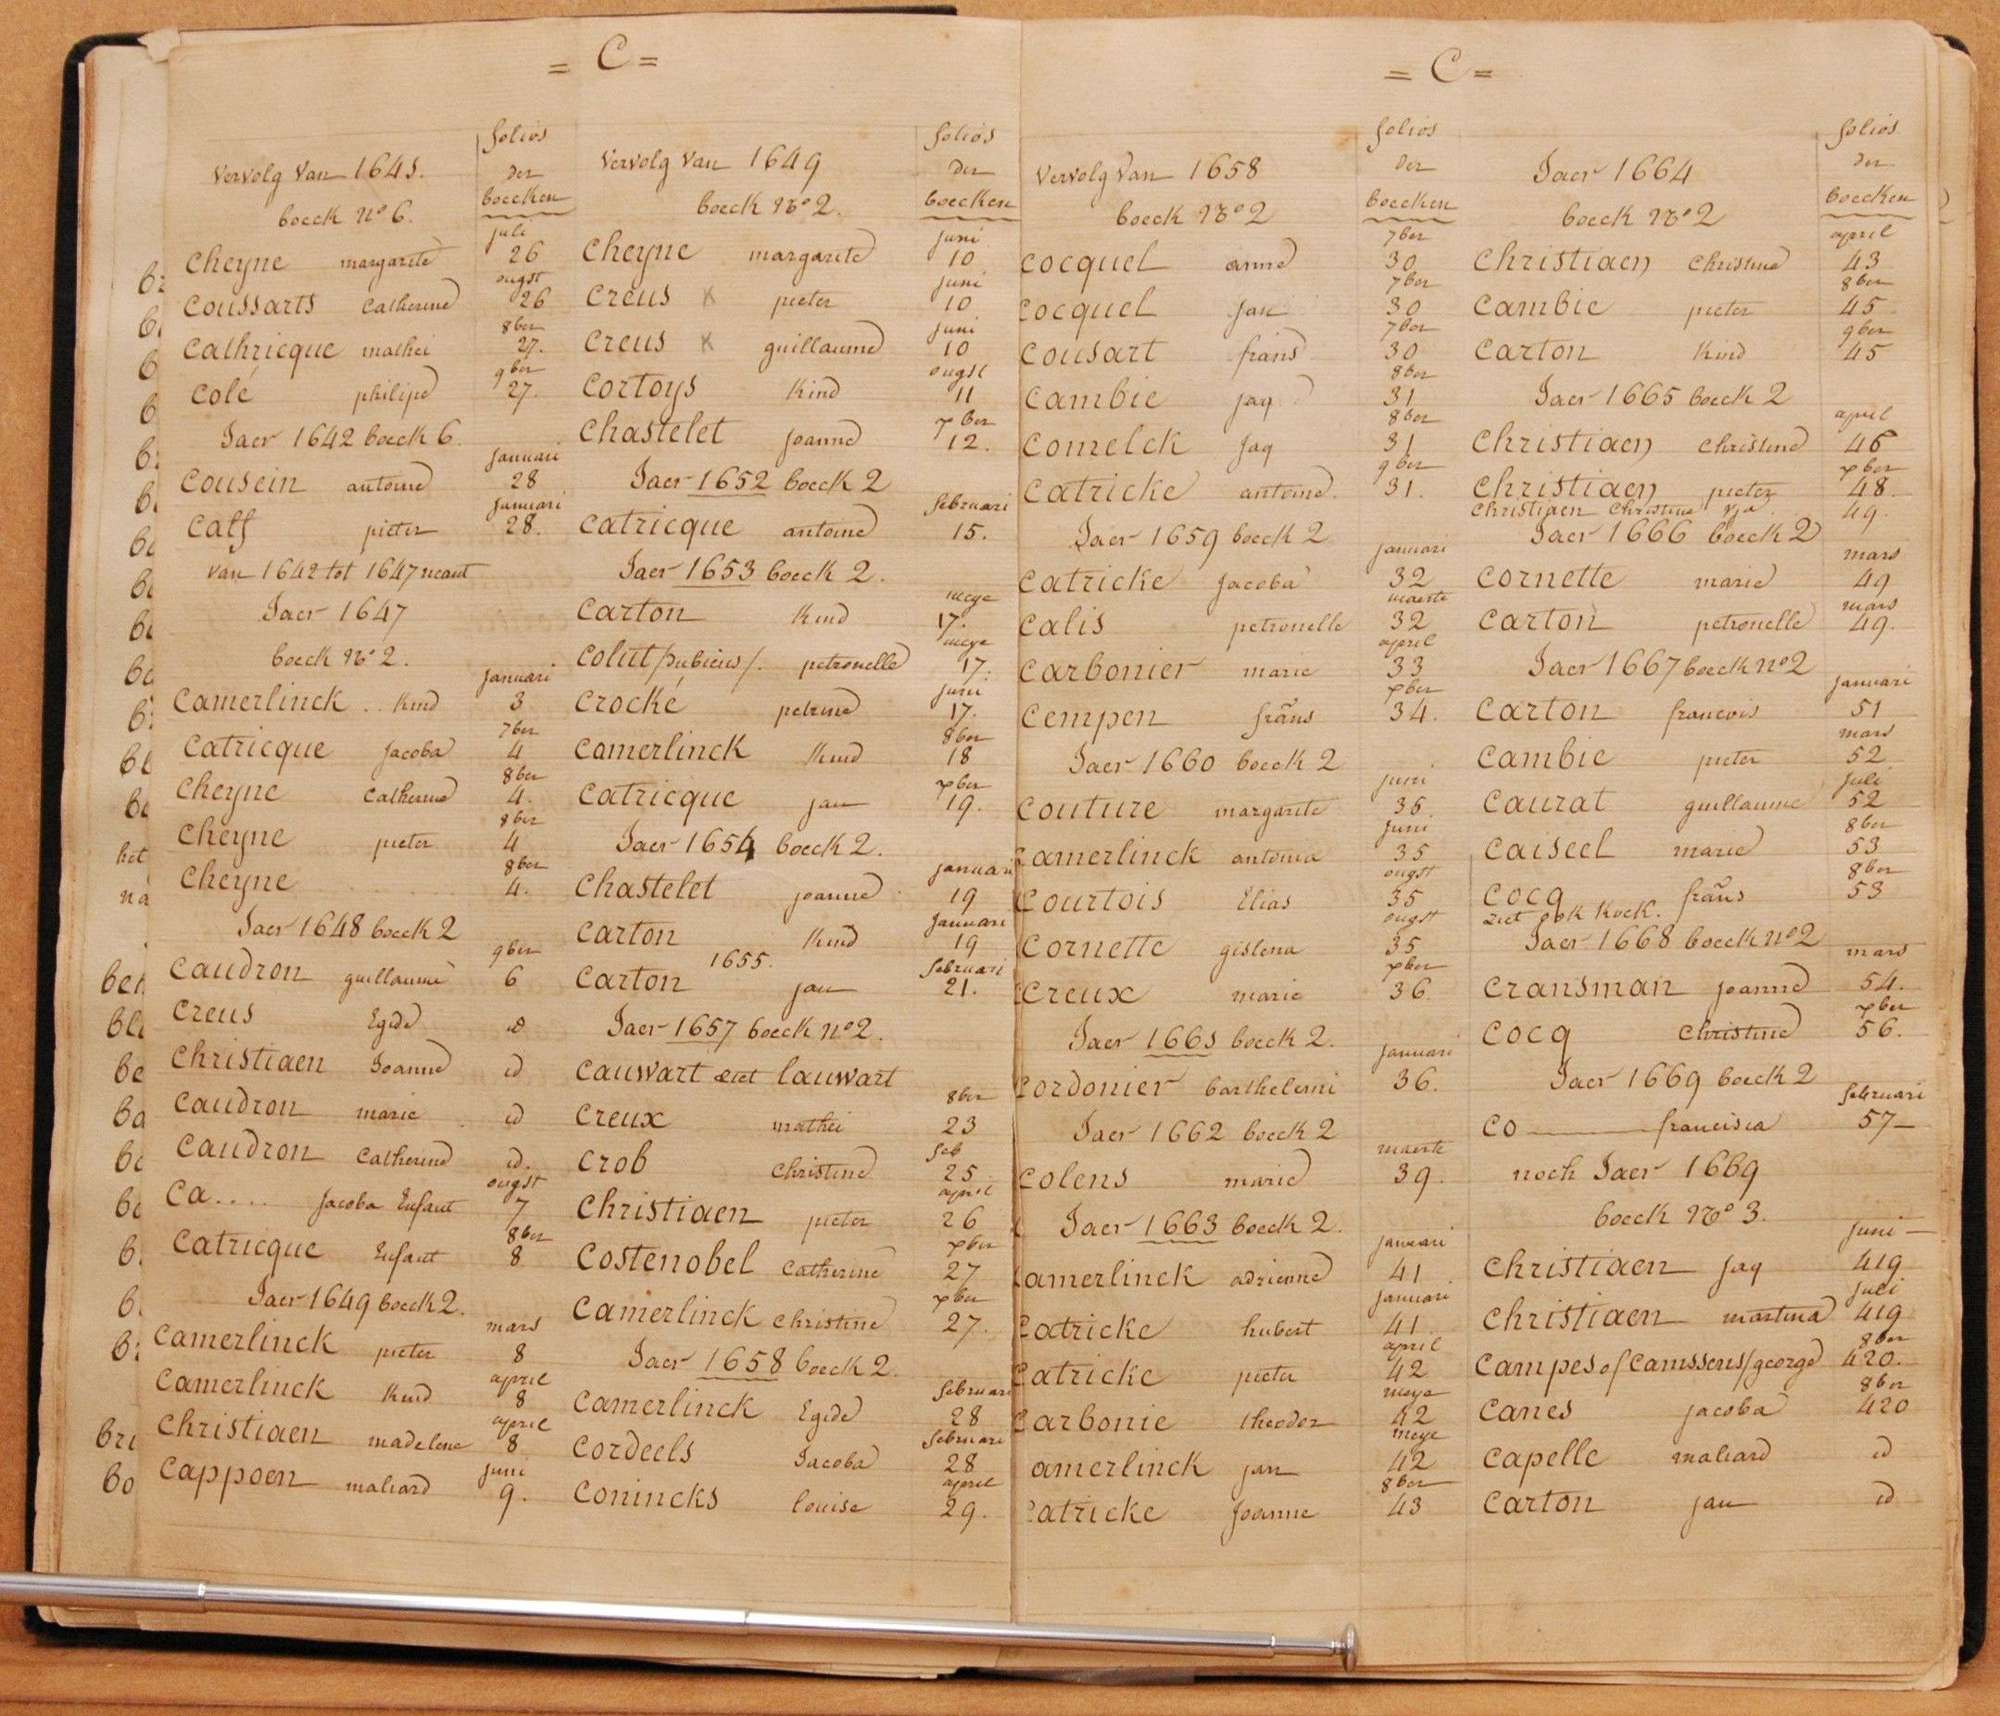 = C =
folios
Vervolg van 1641.
der
boeck No 6.
boecken
juli
Cheyne margarite 26
ougst
Coussarts Catherine 26
8ber
Cathricque mathei 27.
9ber
Colé philipe 27.
Jaer 1642 boeck 6.
januari
Cousein antoine 28
januari
Calf pieter 28.
van 1642 tot 1647 neant
Jaer 1647
boeck No 2.
januari
Camerlinck .. Kind 3
7ber
Catricque Jacoba 4
8ber
Cheyne Catherine 4.
8ber
Cheyne pieter 4
8ber
Cheyne ........ 4.
Jaer 1648 boeck 2
9ber
Caudron guillaume 6
Creus Egide id
Christiaen Joanne id
Caudron marie id
Caudron Catherine id.
ougst
Ca.... Jacoba Enfant 7
8ber
Catricque Enfant 8
Jaer 1649 boeck 2.
mars
Camerlinck pieter 8
april
Camerlinck Kind 8
april
Christiaen madelene 8
juni
Cappoen maliard 9.
folios
Vervolg van 1649
der
boeck No 2.
boecken
juni
Cheyne margarite 10
juni
Creus x pieter 10
juni
Creus x guillaume 10
ougst
Cortoys Kind 11
xber
Chastelet joanne 12.
Jaer 1652 boeck 2
februari
Catricque antoine 15.
Jaer 1653 boeck 2.
meye
Carton Kind 17.
meye
Colut /dubieus/. petronelle 17.
juni
Crocké petrine 17.
8ber
Camerlinck Kind 18
xber
Catricque jan 19.
Jaer 1654 boeck 2.
januari
Chastelet joanne 19
januari
Carton Kind 19
1655.
februari
Carton jan 21.
Jaer 1657 boeck no 2.
Cauwart ziet Lauwart
8ber
Creux mathei 23
feb
Crob Christine 25
april
Christiaen pieter 26
xber
Costenobel Catherine 27
xber
Camerlinck Christine 27.
Jaer 1658 boeck 2.
februari
Camerlinck Egide 28
februari
Cordeels Jacoba 28
april
Conincks louise 29.
= C =
folios
Vervolg van 1658
der
boeck No 2
boecken
7ber
Cocquel anne 30
7ber
Cocquel jan 30
7ber
Cousart frans 30
8ber
Cambie jaq 31
8ber
Comelck jaq 31
9ber
Catricke antoine. 31.
Jaer 1659 boeck 2
januari
Catricke Jacoba 32
maerte
Calis petronelle 32
april
Carbonier marie 33
xber
Cempen frans 34.
Jaer 1660 boeck 2
juni
Couture margarite 35.
juni
Camerlinck antonia 35
ougst
Courtois Elias 35
ougst
Cornette gislena 35
xber
Creux marie 36.
Jaer 1661 boeck 2.
januari
Cordonier barthelemi 36.
Jaer 1662 boeck 2
maerte
Colens marie 39.
Jaer 1663 boeck 2.
januari
Camerlinck adrienne 41
januari
Catricke hubert 41
april
Catricke pieter 42
meye
Carbonie theodor 42
meye
amerlinck jan 42
8ber
Catricke Joanne 43
folios
Jaer 1664
der
boeck No 2
boecken
april
Christiaen Christine 43
8ber
Cambie pieter 45
9ber
Carton Kind 45
Jaer 1665 boeck 2
april
Christiaen Christine 46
xber
Christiaen pieter 48.
Christiaen Christine 49.
Jaer 1666 boeck 2
mars
Cornette marie 49
mars
Carton petronelle 49.
Jaer 1667 boeck no 2
januari
Carton francois 51
mars
Cambie pieter 52
juli
Caurat guillaume 52
8ber
Caiseel marie 53
8ber
Cocq frans 53
ziet ook Kock.
Jaer 1668 boeck no 2
mars
Cransman joanne 54.
xber
Cocq Christine 56.
Jaer 1669 boeck 2
februari
Co——— francisca 57—
noch Jaer 1669
boeck No 3.
juni —
Christiaen jaq 419
juli
Christiaen martina 419
8ber
Campes of Camssens/george 420.
8ber
Canes jacoba 420
Capelle maliard id
Carton jan id